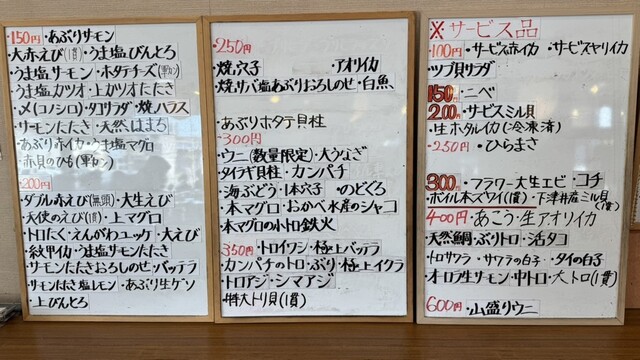 150円・あぶりサーモン
大赤えび(1貫)・うま塩びんとろ
うま塩サーモン・ホタテチーズ(軍カン)
うま塩カツオ・上カツオたたき
〆(コノシロ)・タコサラダ・焼ハラス
サーモンたたき・天然はまち
・あぶり赤イカ・うま塩マグロ
・赤貝のひも(軍カン)
200円
ダブル赤えび(無頭)・大生えび
天使のえび(1貫)・上マグロ
・トロたく・えんがわユッケ・大えび
・紋甲イカ・うま塩サーモンたたき
・サーモンたたきおろしのせ・バッテラ
・サーモンたたき塩レモン・あぶり生ゲソ
・上びんとろ
250円
・焼穴子・アオリイカ
・焼サバ塩あぶりおろしのせ・白魚
・あぶりホタテ貝柱
300円
・ウニ(数量限定)・大うなぎ
・タイラギ貝柱・カンパチ
・海ぶどう・1本穴子・のどぐろ
・本マグロ・おかべ水産のシャコ
・本マグロの小トロ鉄火
350円・トロイワシ・極上バッテラ
・カンパチのトロ・ぶり・極上イクラ
・トロアジ・シマアジ
・特大トリ貝(1貫)
※サービス品
100円・サービス赤イカ・サービスヤリイカ
ツブ貝サラダ
150円・ニベ
200円・サービスミル貝
・生ホタルイカ(冷凍済)
・250円・ひらまさ
300円・フラワー大生エビ・コチ
・ボイル本ズワイ(1貫)・下津井産ミル貝(1貫)
400円・あこう・生アオリイカ
天然鯛・ぶりトロ・活タコ
・トロサワラ・サワラの白子・タイの白子
・オーロラ生サーモン・中トロ・大トロ(1貫)
600円・山盛りウニ